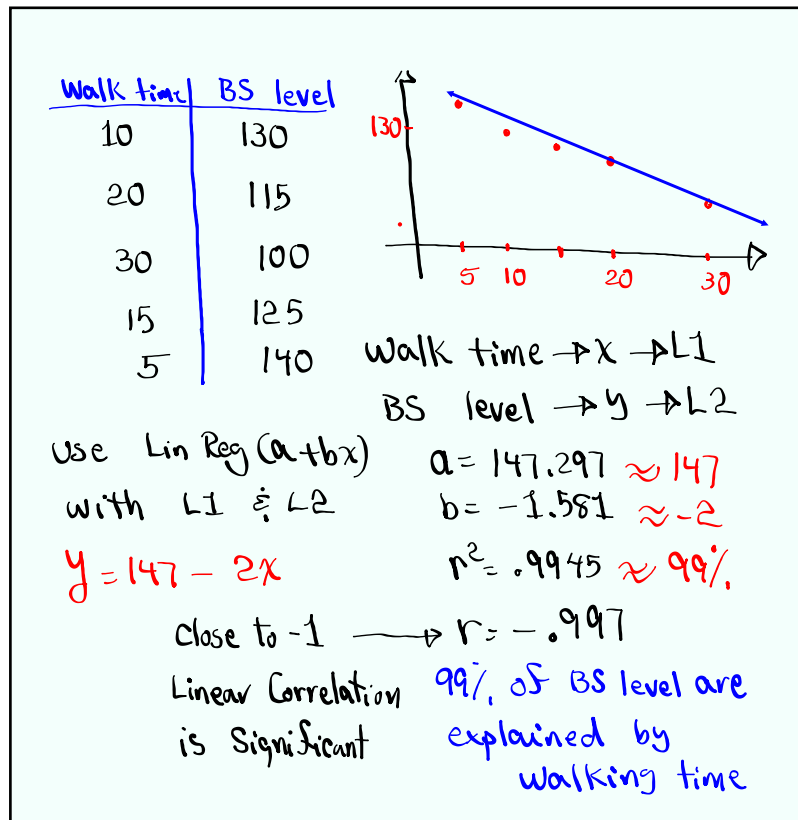 Walk time BS level
10 130
20 115
30 100
15 125
5 140
130
5 10 20 30
Walk time → x → L1
BS level → y → L2
Use LinReg(a+bx)
with L1 & L2
y = 147 - 2x
a = 147.297 ≈ 147
b = -1.581 ≈ -2
r² = .9945 ≈ 99%
close to -1 → r = -.997
Linear Correlation
is Significant
99% of BS level are
explained by
walking time